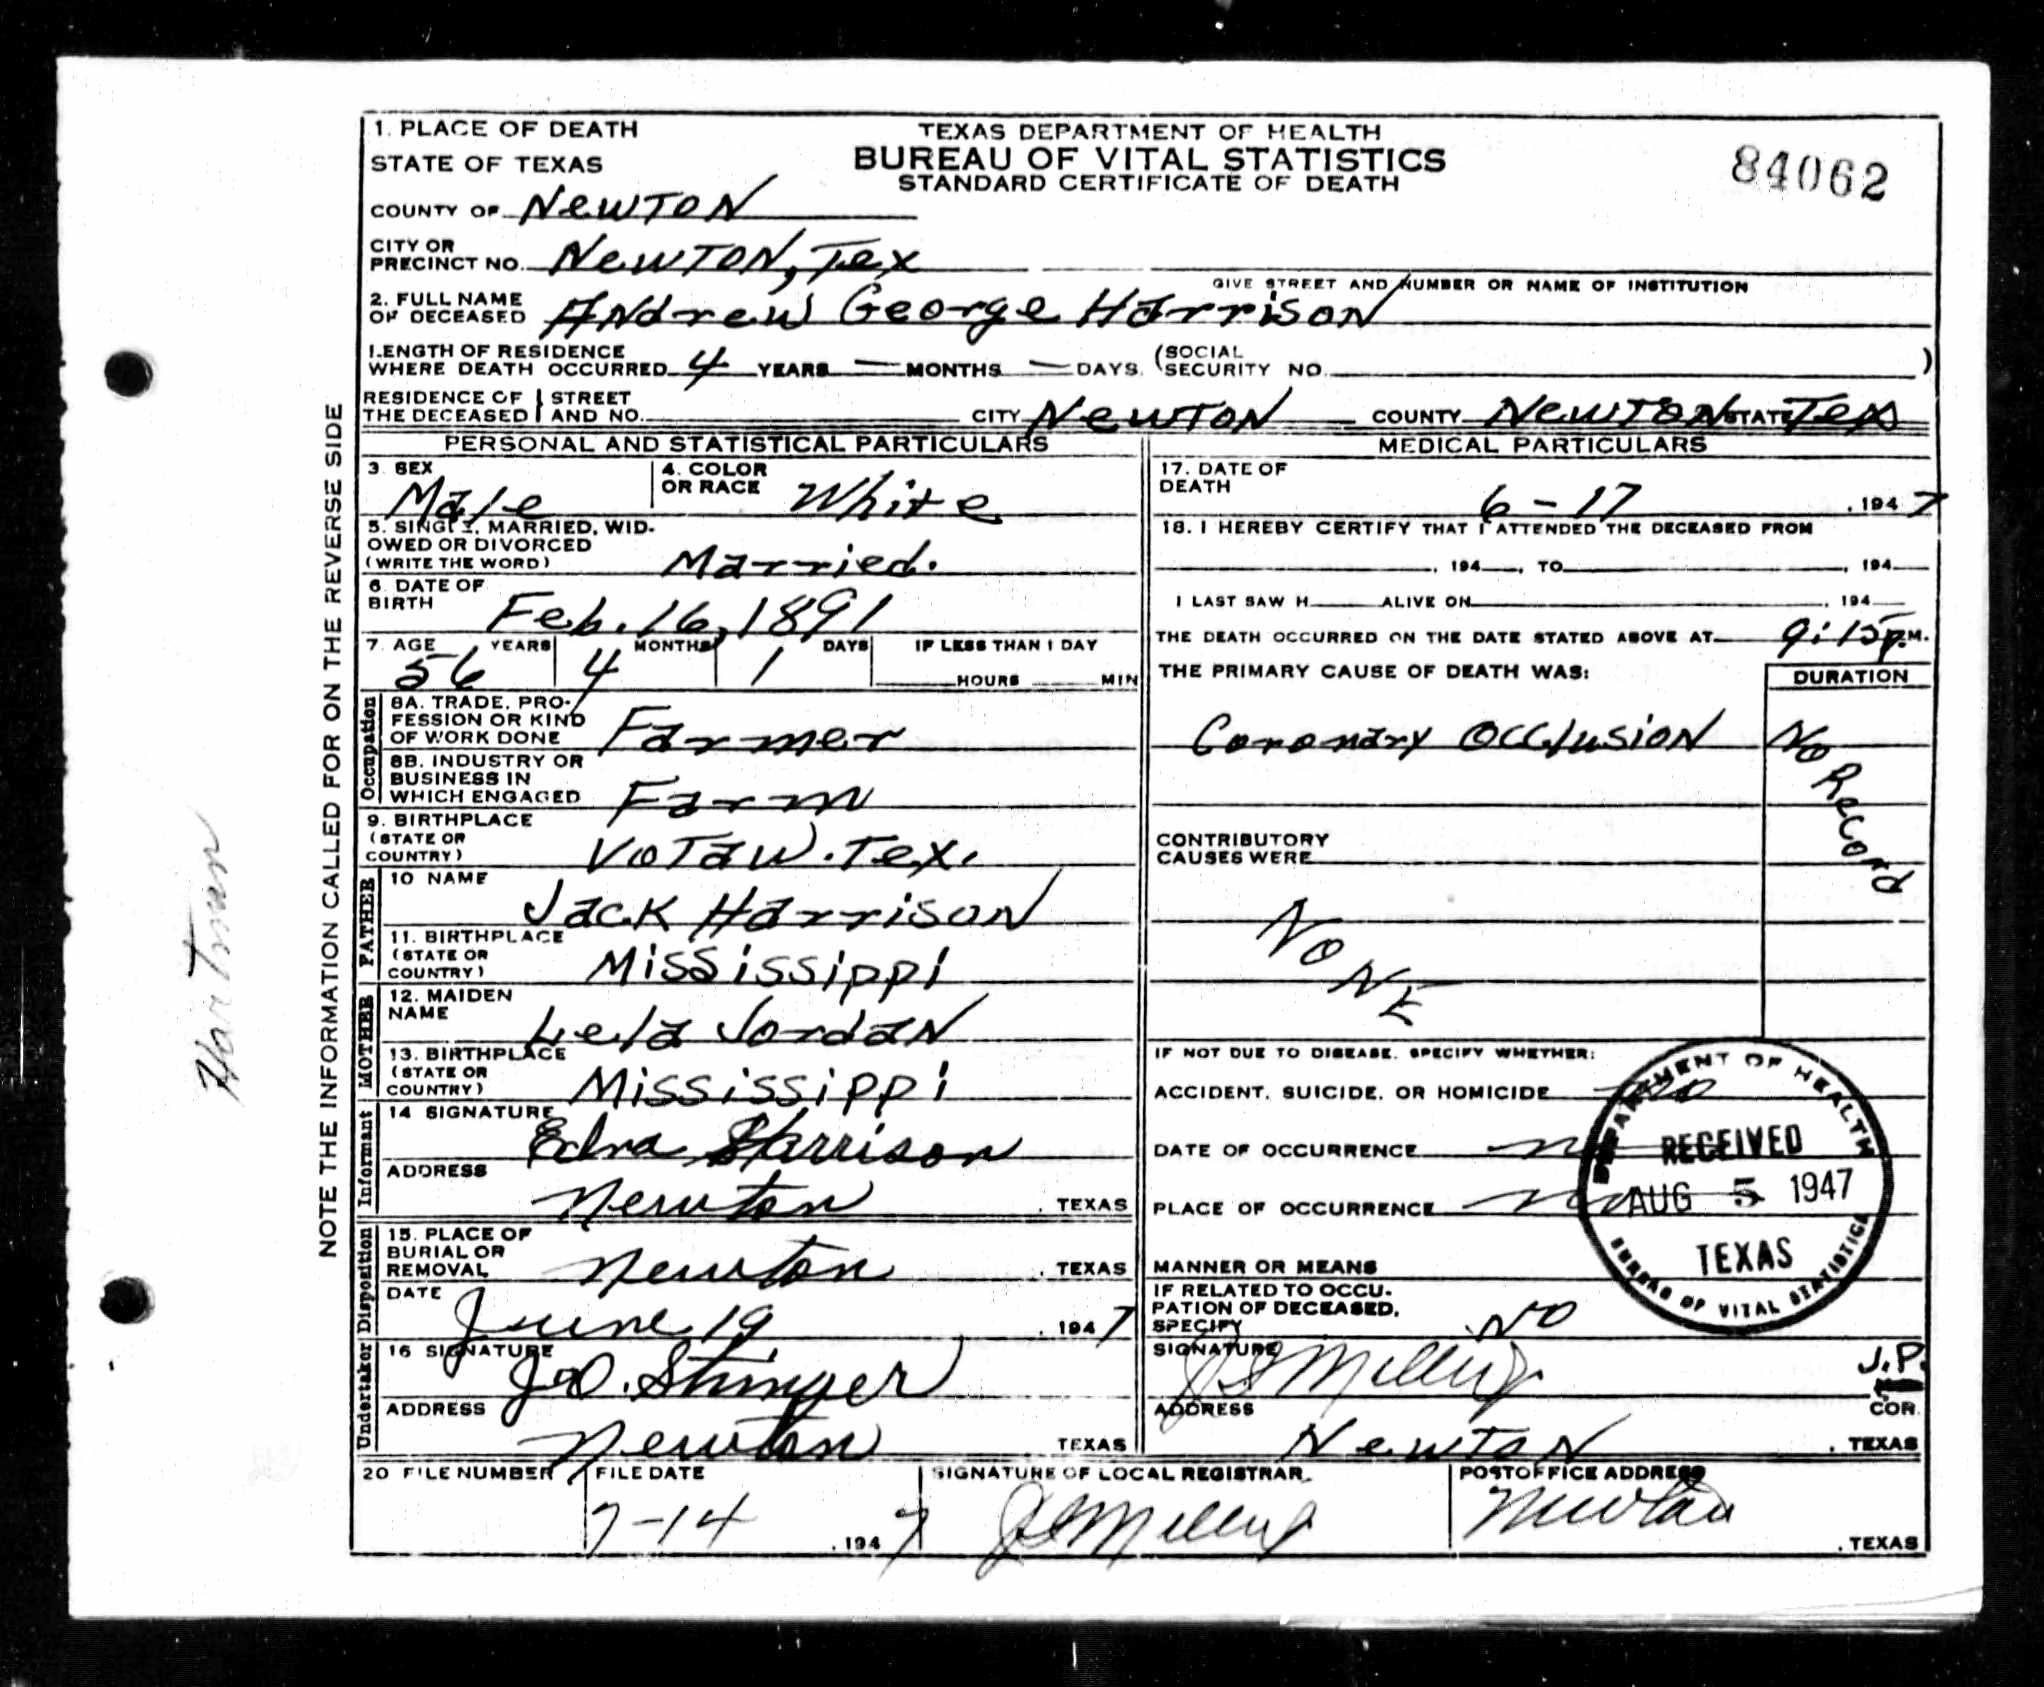 TEXAS DEPARTMENT OF HEALTH
BUREAU OF VITAL STATISTICS
STANDARD CERTIFICATE OF DEATH
84062
1. PLACE OF DEATH
STATE OF TEXAS
COUNTY OF Newton
CITY OR PRECINCT NO. Newton, Tex
GIVE STREET AND NUMBER OR NAME OF INSTITUTION
2. FULL NAME OF DECEASED Andrew George Harrison
LENGTH OF RESIDENCE WHERE DEATH OCCURRED 4 YEARS — MONTHS — DAYS. (SOCIAL SECURITY NO. )
RESIDENCE OF THE DECEASED STREET AND NO. CITY Newton COUNTY Newton STATE Tex
PERSONAL AND STATISTICAL PARTICULARS
3. SEX Male
4. COLOR OR RACE White
5. SINGLE, MARRIED, WIDOWED OR DIVORCED (WRITE THE WORD) Married.
6. DATE OF BIRTH Feb. 16, 1891
7. AGE 56 YEARS 4 MONTHS 1 DAYS IF LESS THAN 1 DAY HOURS MIN
Occupation
8A. TRADE, PROFESSION OR KIND OF WORK DONE Farmer
8B. INDUSTRY OR BUSINESS IN WHICH ENGAGED Farm
9. BIRTHPLACE (STATE OR COUNTRY) Votaw. Tex.
FATHER
10 NAME Jack Harrison
11. BIRTHPLACE (STATE OR COUNTRY) Mississippi
MOTHER
12. MAIDEN NAME Lela Jordan
13. BIRTHPLACE (STATE OR COUNTRY) Mississippi
Informant
14 SIGNATURE Edna Harrison
ADDRESS Newton, TEXAS
Disposition
15. PLACE OF BURIAL OR REMOVAL Newton, TEXAS
DATE June 19, 1947
Undertaker
16 SIGNATURE Stringer
ADDRESS Newton TEXAS
MEDICAL PARTICULARS
17. DATE OF DEATH 6-17, 1947
18. I HEREBY CERTIFY THAT I ATTENDED THE DECEASED FROM
, 194 , TO , 194
I LAST SAW H ALIVE ON , 194
THE DEATH OCCURRED ON THE DATE STATED ABOVE AT 9:15 P.M.
THE PRIMARY CAUSE OF DEATH WAS: DURATION
Coronary Occlusion No Record
CONTRIBUTORY CAUSES WERE
None
IF NOT DUE TO DISEASE, SPECIFY WHETHER:
ACCIDENT, SUICIDE, OR HOMICIDE no
DATE OF OCCURRENCE no
PLACE OF OCCURRENCE no
MANNER OR MEANS
IF RELATED TO OCCUPATION OF DECEASED, SPECIFY No
SIGNATURE J.P.
COR.
ADDRESS Newton, TEXAS
DEPARTMENT OF HEALTH
RECEIVED
AUG 5 1947
TEXAS
BUREAU OF VITAL STATISTICS
20 FILE NUMBER
FILE DATE 7-14, 1947
SIGNATURE OF LOCAL REGISTRAR
POSTOFFICE ADDRESS Newton, TEXAS
NOTE THE INFORMATION CALLED FOR ON THE REVERSE SIDE
Hartman